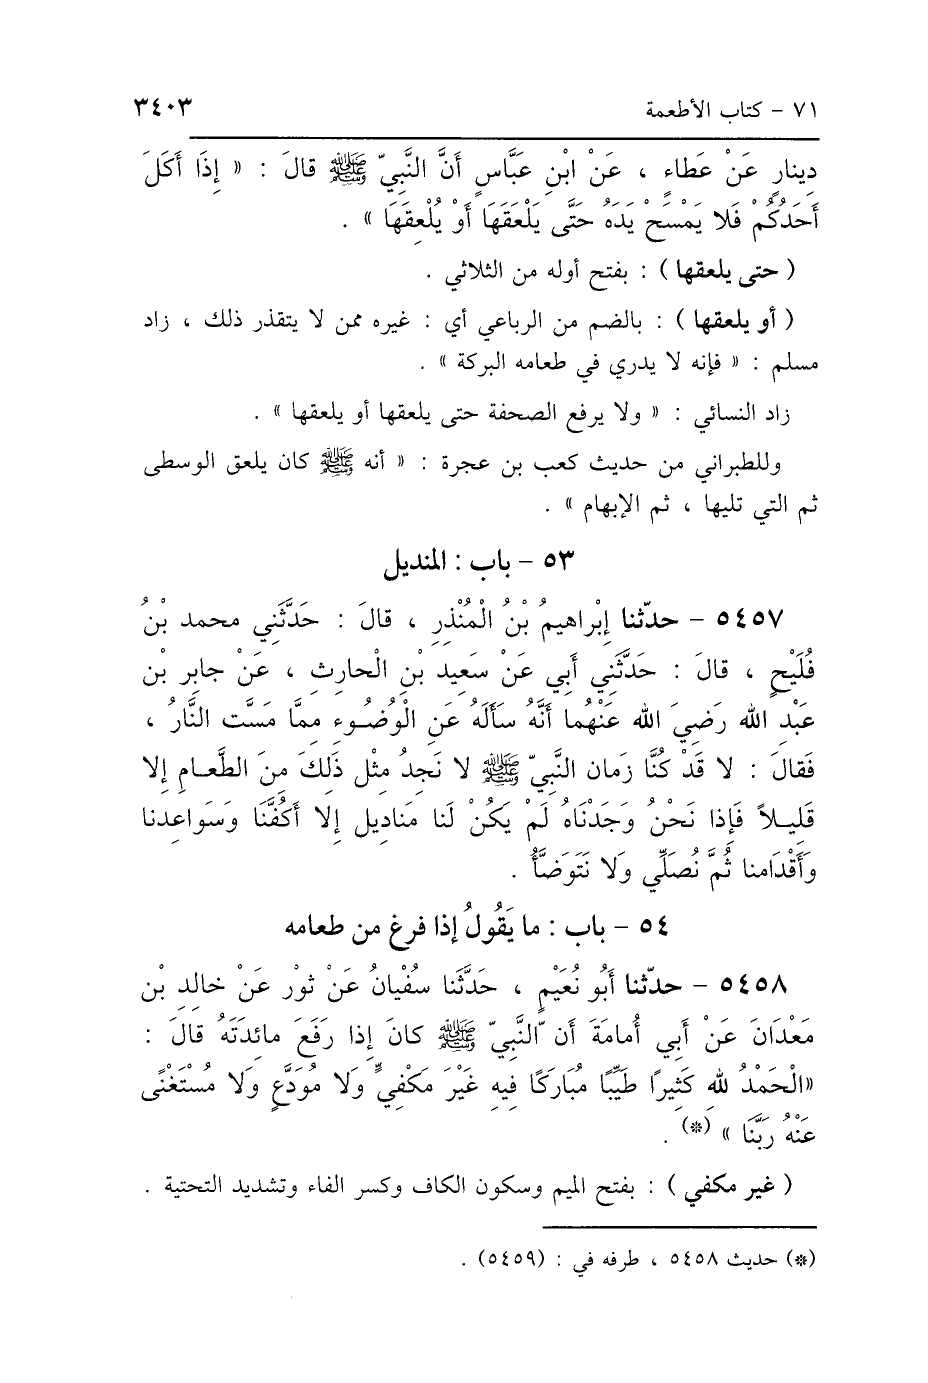 ٧١ - كتاب الأطعمة ٣٤٠٣
دِينارٍ عَنْ عَطَاءٍ ، عَنْ ابْنِ عَبَّاسٍ أَنَّ النَّبِيّ ﷺ قالَ : « إِذَا أَكَلَ
أَحَدُكُمْ فَلا يَمْسَحْ يَدَهُ حَتَّى يَلْعَقَهَا أَوْ يُلْعِقَهَا » .
( حتى يلعقها ) : بفتح أوله من الثلاثي .
( أو يلعقها ) : بالضم من الرباعي أي : غيره ممن لا يتقذر ذلك ، زاد
مسلم : « فإنه لا يدري في طعامه البركة » .
زاد النسائي : « ولا يرفع الصحفة حتى يلعقها أو يلعقها » .
وللطبراني من حديث كعب بن عجرة : « أنه ﷺ كان يلعق الوسطى
ثم التي تليها ، ثم الإبهام » .
٥٣ - باب : المنديل
٥٤٥٧ - حدّثنا إِبْراهيمُ بْنُ الْمُنْذِرِ ، قالَ : حَدَّثَنِي محمد بْنُ
فُلَيْحٍ ، قالَ : حَدَّثَنِي أَبي عَنْ سَعِيد بْنِ الْحارِث ، عَنْ جابِرِ بْن
عَبْدِ الله رَضِيَ الله عَنْهُما أَنَّهُ سَأَلَهُ عَنِ الْوُضُوءِ مِمَّا مَسَّت النَّارُ ،
فَقالَ : لا قَدْ كُنَّا زَمان النَّبِيّ ﷺ لا نَجِدُ مِثْل ذَلِكَ مِنَ الطَّعامِ إِلا
قَلِيلاً فَإِذا نَحْنُ وَجَدْنَاهُ لَمْ يَكُنْ لَنا مَنادِيل إِلا أَكُفَّنَا وَسَوَاعِدنا
وَأَقْدَامنا ثُمَّ نُصَلِّي وَلا نَتَوَضَّأُ .
٥٤ - باب : ما يَقُولُ إذا فرغ من طعامه
٥٤٥٨ - حدّثنا أَبُو نُعَيْمٍ ، حَدَّثَنا سُفْيانُ عَنْ ثوْر عَنْ خالِدِ بْن
مَعْدَانَ عَنْ أَبِي أُمامَةَ أَن ّالنَّبِيّ ﷺ كانَ إِذا رَفَعَ مائِدَتَهُ قالَ :
«الْحَمْدُ لله كَثِيرًا طَيِّبًا مُبَارَكًا فِيهِ غَيْرَ مَكْفِيٍّ وَلا مُوَدَّعٍ وَلا مُسْتَغْنًى
عَنْهُ رَبَّنَا » (*) .
( غير مكفي ) : بفتح الميم وسكون الكاف وكسر الفاء وتشديد التحتية .
(*) حديث ٥٤٥٨ ، طرفه في : (٥٤٥٩) .